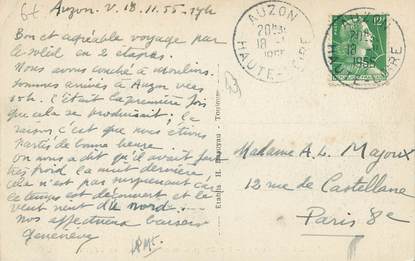 Auzon. V. 18.11.55 - 17h
Bon et agréable voyage par
le soleil en 2 étapes.
Nous avons couché à Moulins.
Sommes arrivés à Auzon vers
C'était la première fois
que cela se produisait; la
raison, c'est que nous étions
partis de bonne heure.
On nous a dit qu'il avait fait
très froid la nuit dernière,
cela n'est pas surprenant car
le temps est découvert et le
vent vient du nord...
Nos affectueux baisers
Geneviève
AUZON
18
1955
HAUTE-LOIRE
12F
1955
Madame A. L. Majoux
12 rue de Castellane
Paris 8e